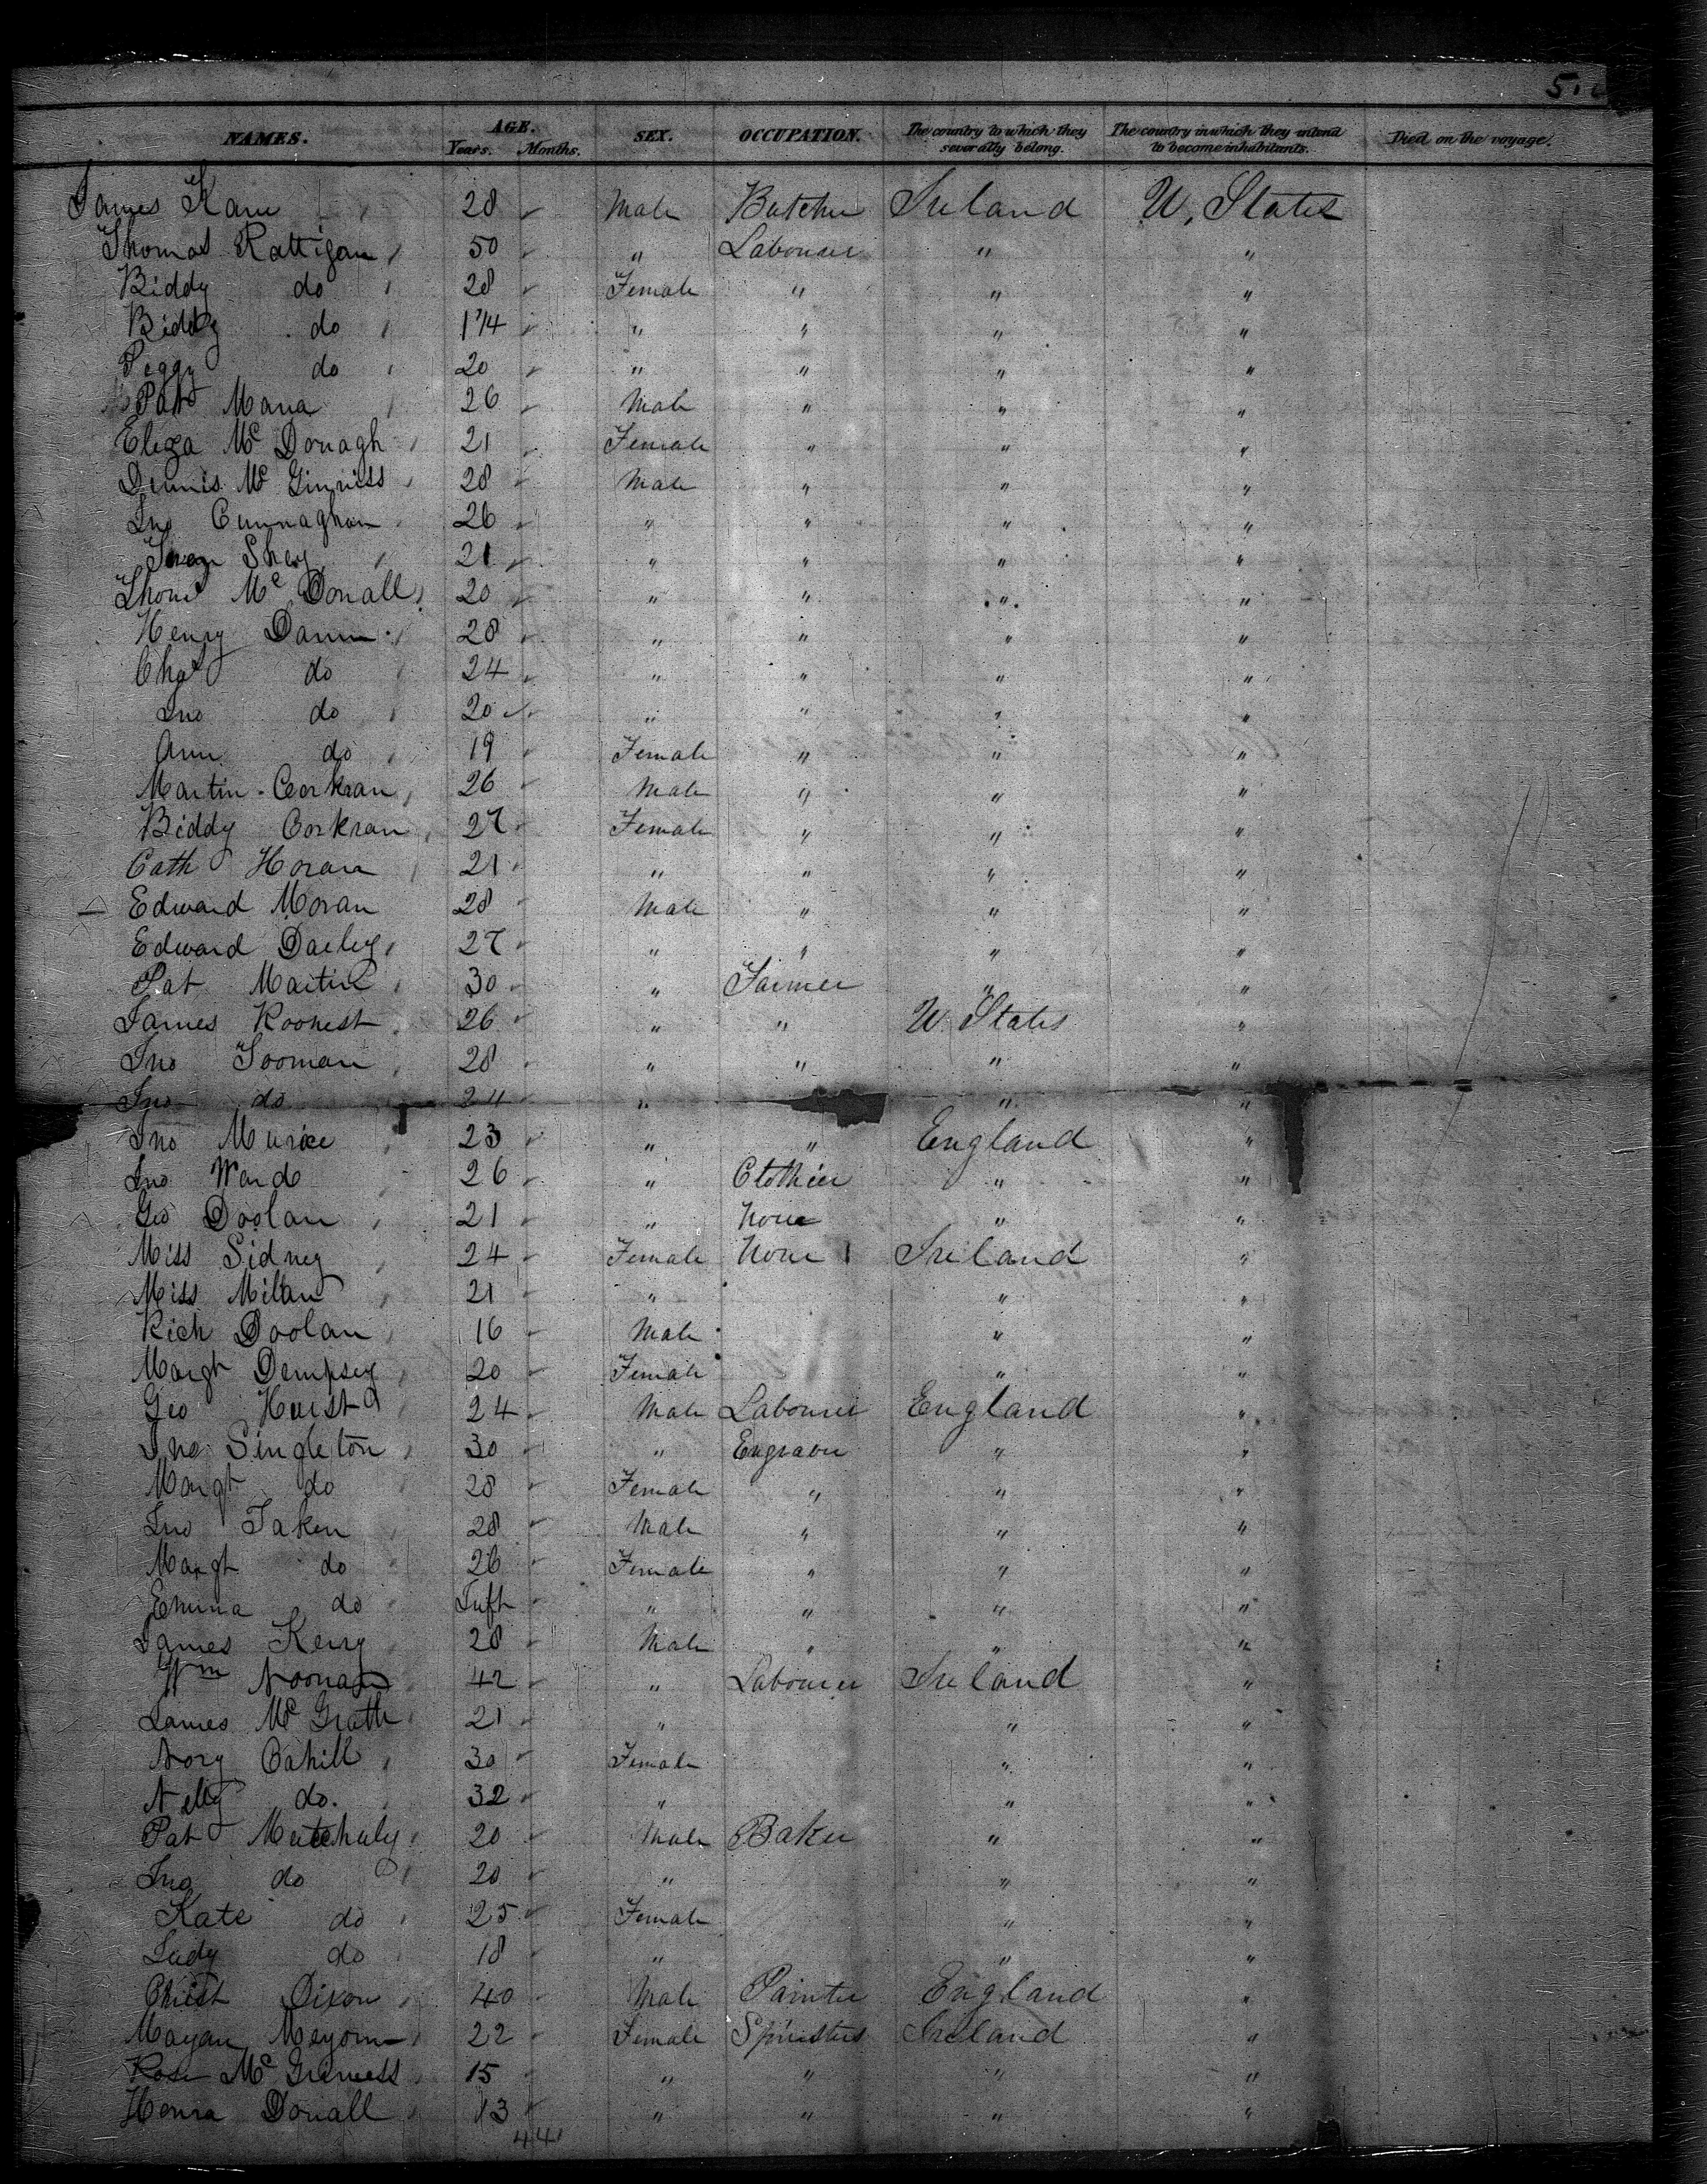 NAMES. AGE. Years. Months. SEX. OCCUPATION. The country to which they severally belong. The country in which they intend to become inhabitants. Died on the voyage.
James Kane 28 Male Butcher Ireland U. States
Thomas Rattigan 50 " Labourer " "
Biddy do 28 Female " " "
Biddy do 1 1/4 " " " "
Peggy do 20 " " " "
Pat Mana 26 Male " " "
Eliza Mc Donagh 21 Female " " "
Dennis Mc Ginniss 28 Male " " "
Jno Cunnaghan 26 " " " "
Shey 21 " " " "
Thoms Mc Donall 20 " " " "
Henry Dann 28 " " " "
Chas do 24 " " " "
Jno do 20 " " " "
Ann do 19 Female " " "
Martin Corkran 26 Male " " "
Biddy Corkran 27 Female " " "
Cath Horan 21 " " " "
Edward Moran 28 Male " " "
Edward Dailey 27 " " " "
Pat Martin 30 " Farmer " "
James 26 " " U States "
Jno Tooman 28 " " " "
Jno do 24 " " "
Jno Murice 23 " " England "
Jno Ward 26 " Clothier " "
Geo Doolan 21 " None " "
Miss Sidney 24 Female None Ireland "
Miss Milan 21 " " "
Rich Doolan 16 Male " "
Margt Dempsey 20 Female " "
Geo Hurst 24 Male Labourer England "
Jno Singleton 30 " Engraver " "
Margt do 28 Female " " "
Jno Taken 28 Male " " "
Margt do 26 Female " " "
Emma do Inft " " " "
James Kerry 28 Male " " "
Wm Noonan 42 " Labourer Ireland "
James Mc Grath 21 " " "
Nory Cahill 30 Female " "
Nelly do. 32 " " "
Pat Mutchuly 20 Male Baker " "
Jno do 20 " " "
Kate do 25 Female " "
Judy do 18 " " "
Christ Dixon 40 Male Painter England "
22 Female Spinsters Ireland "
Rose Mc 15 " " " "
Honra Donall 13 " " " "